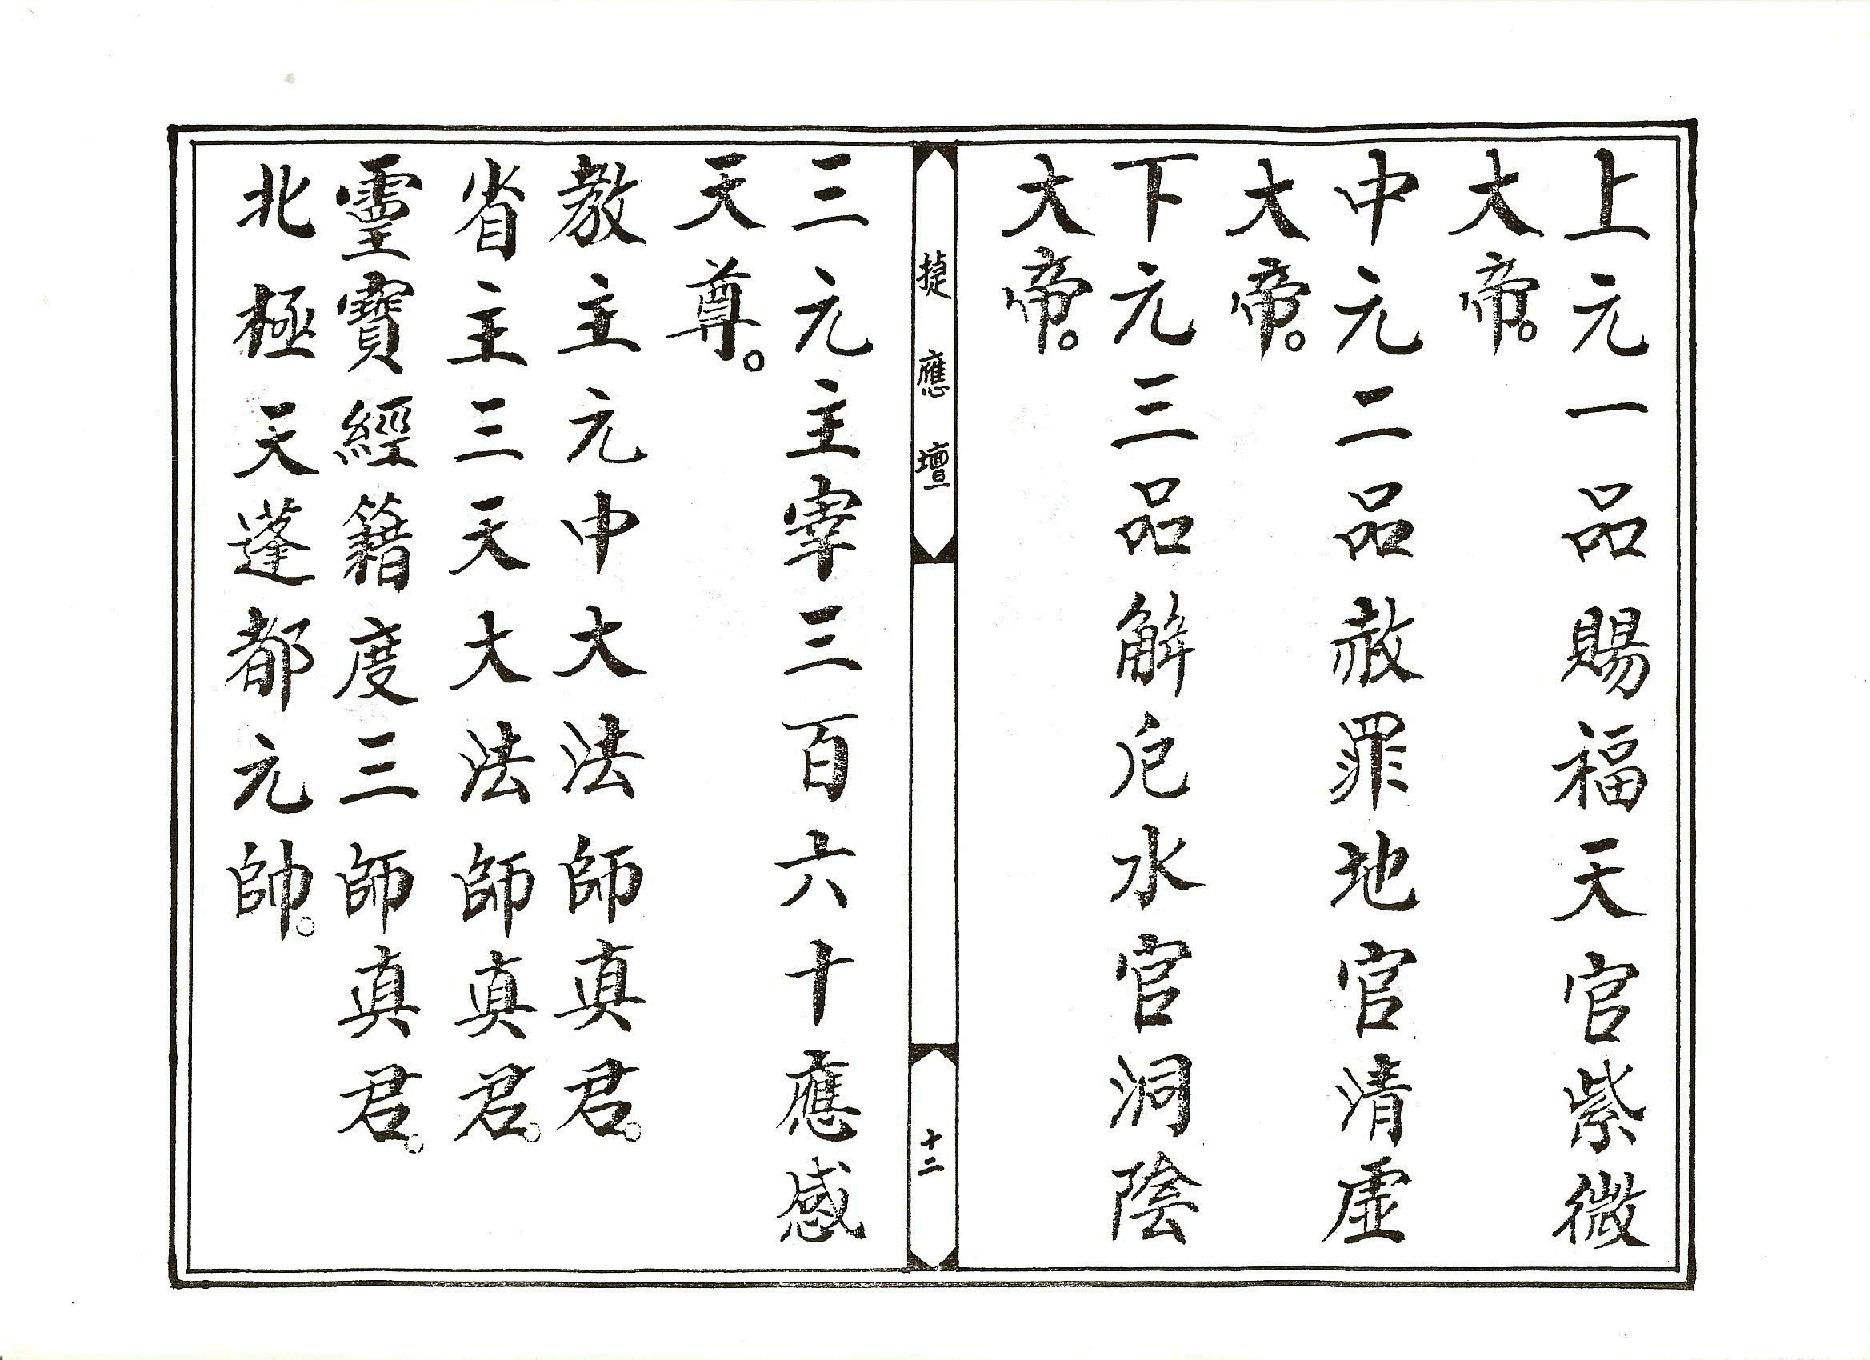 上元一品賜福天官紫微
大帝。
中元二品赦罪地官清虛
大帝。
下元三品解厄水官洞陰
大帝。
捷應壇
十二
三元主宰三百六十應感
天尊。
教主元中大法師真君。
省主三天大法師真君。
靈寶經籍度三師真君。
北極天蓬都元帥。